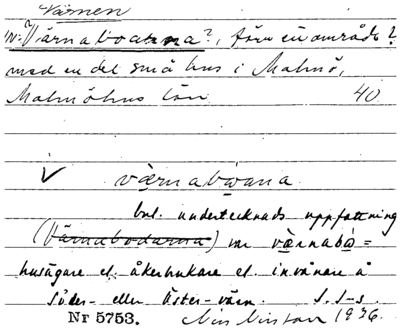 Värnen
N: Värnaboarna?, förr en område?
med en del små hus i Malmö,
Malmöhus län 40
V værnabwana
enl. undertecknads uppfattning
(Värnabodarna) var værnabå=
husägare el. åkerbrukare el. invånare å
Söder- eller Öster-värn. S. S-s.
Nr 5753. 1936.